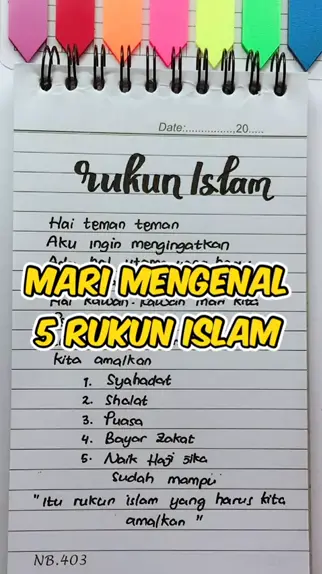 Date:................,20.....
rukun Islam
Hai teman teman
Aku ingin mengingatkan
MARI MENGENAL
5 RUKUN ISLAM
kita amalkan
1. Syahadat
2. Shalat
3. Puasa
4. Bayar Zakat
5. Naik Haji jika
sudah mampu
"Itu rukun islam yang harus kita
amalkan"
NB.403